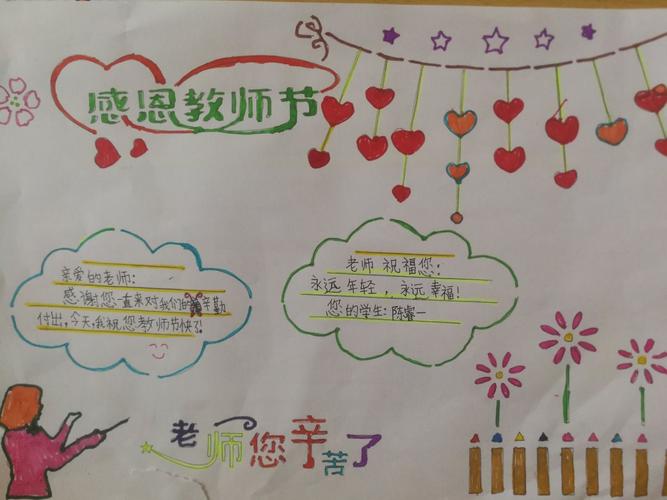 感恩教师节
亲爱的老师:
感谢您一直来对我们的辛勤
付出,今天,我祝您教师节快了!
老师 祝福您:
永远 年轻 , 永远 幸福!
您的学生:陈睿一
老师您辛苦了